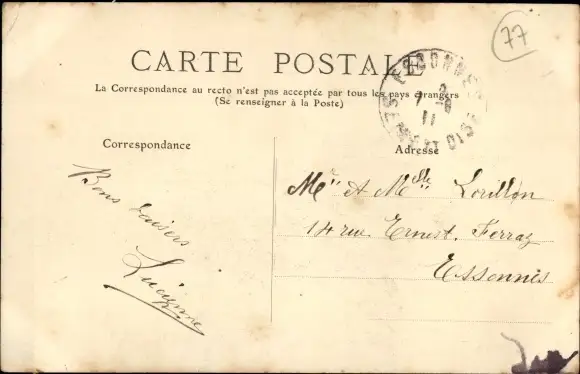 77
CARTE POSTALE
La Correspondance au recto n'est pas acceptée par tous les pays étrangers
(Se renseigner à la Poste)
Correspondance
Adresse
Bons baisers
Lucienne
Mr et Melle Lorillon
14 rue Ernest. Ferray
Essonnes
ESSONNES
SEINE ET OISE
11